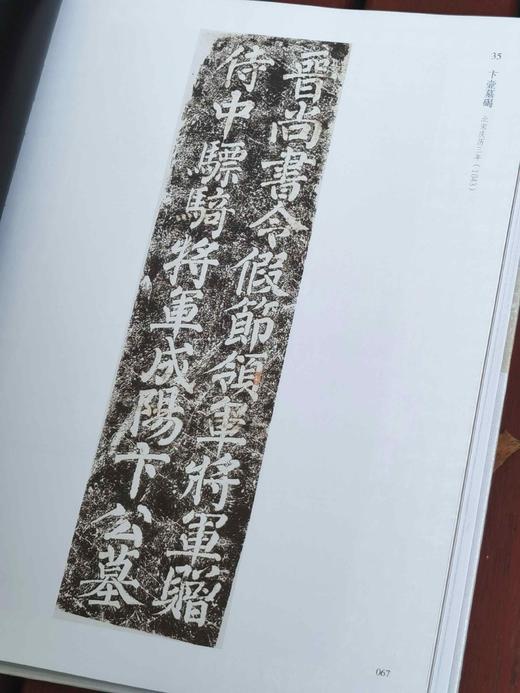 35 卞壼墓碣 北宋庆历三年（1043）
晉尚書令假節領軍將軍贈
侍中驃騎將軍成陽卞公墓
067